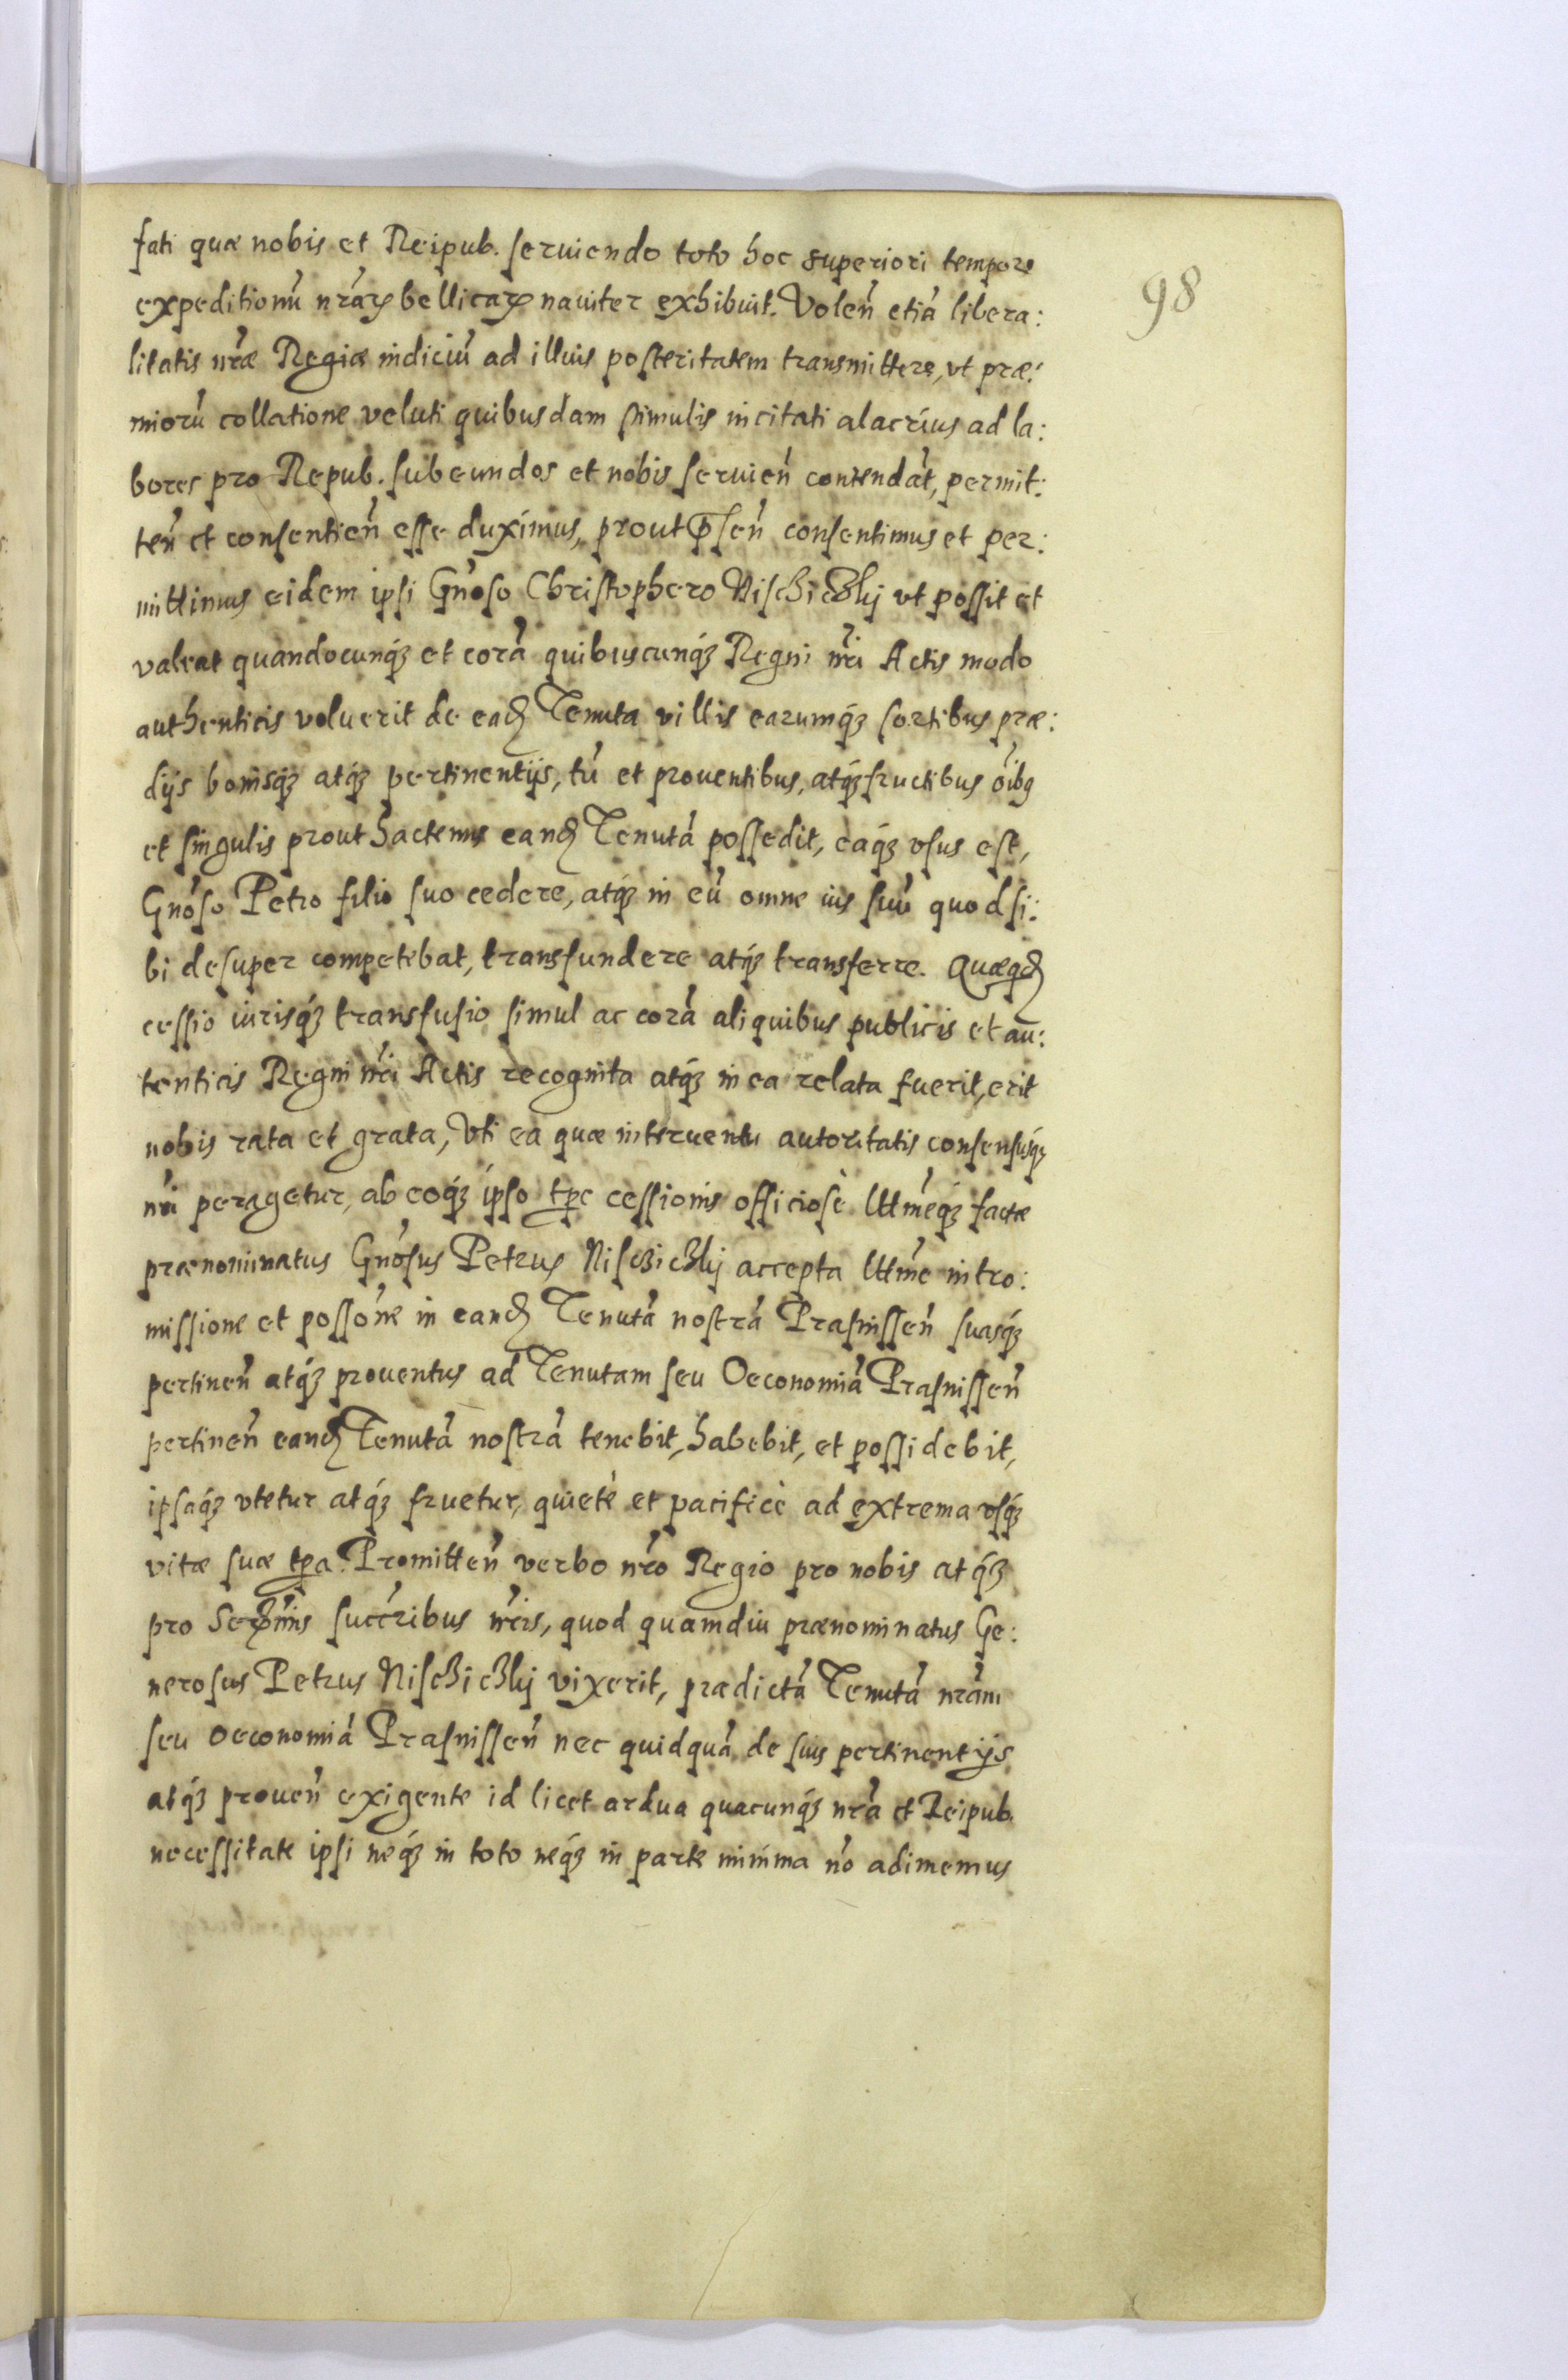 98
fati quæ nobis et Reipub. seruiendo toto hoc superiori tempore
expeditionū nrāꝝ bellicaꝝ nauiter exhibuit. Volen̄ etiā libera:
litatis nr̄æ Regiæ indiciū ad illius posteritatem transmittere, vt præ:
miorū collatione veluti quibusdam stimulis incitati alacrius ad la:
bores pro Repub. subeundos et nobis seruien̄ contendāt, permit:
ten̄ et consentien̄ esse duximus, prout p̄sen̄ consentimus et per:
mittimus eidem ipsi Gnōso Christophero Nisczickij vt possit et
valeat quandocunqꝫ et corā quibuscunqꝫ Regni nr̄i Actis modo
authenticis voluerit de eadꝫ Tenuta villis earumqꝫ sortibus præ:
dijs bonisqꝫ atqꝫ pertinentijs, tū et prouentibus, atqꝫ fructibus oībꝫ
et singulis prout hactenus eandꝫ Tenutā possedit, eaqꝫ vsus est,
Gnōso Petro filio suo cedere, atqꝫ in eū omne ius suū quod si:
bi desuper competebat, transfundere atqꝫ transferre. Quæqdꝫ
cessio iurisqꝫ transfusio simul ac corā aliquibus publicis et au:
tenticis Regni nr̄i Actis recognita atqꝫ in ea relata fuerit, erit
nobis rata et grata, Vti ea quæ interuentu autoritatis consensusqꝫ
nr̄i peragetur, ab eoqꝫ ipso tp̄e cessionis officiosè lttm̄eqꝫ factæ
prænominatus Gnōsus Petrus Nisczickij accepta lttm̄e intro:
missione et possōne in eandꝫ Tenutā nostrā Prasnissen̄ suasqꝫ
pertinen̄ atqꝫ prouentus ad Tenutam seu Oeconomiā Prasnissen̄
pertinen̄ eandꝫ Tenutā nostrā tenebit, habebit, et possidebit,
ipsaqꝫ vtetur atqꝫ fruetur, quietè et pacificè ad extrema vsqꝫ
vitæ suæ tp̄a. Promitten̄ verbo nr̄o Regio pro nobis atqꝫ
pro Ser̄mis succr̄ibus nr̄is, quod quamdiu prænominatus Ge:
nerosus Petrus Nisczickij vixerit, prædictā Tenutā nrām
seu Oeconomiā Prasnissen̄ nec quidquā de suis pertinentijs
atqꝫ prouen̄ exigente id licet ardua quacunqꝫ nr̄a et Reipub.
necessitate ipsi neqꝫ in toto neqꝫ in parte minima nō adimemus